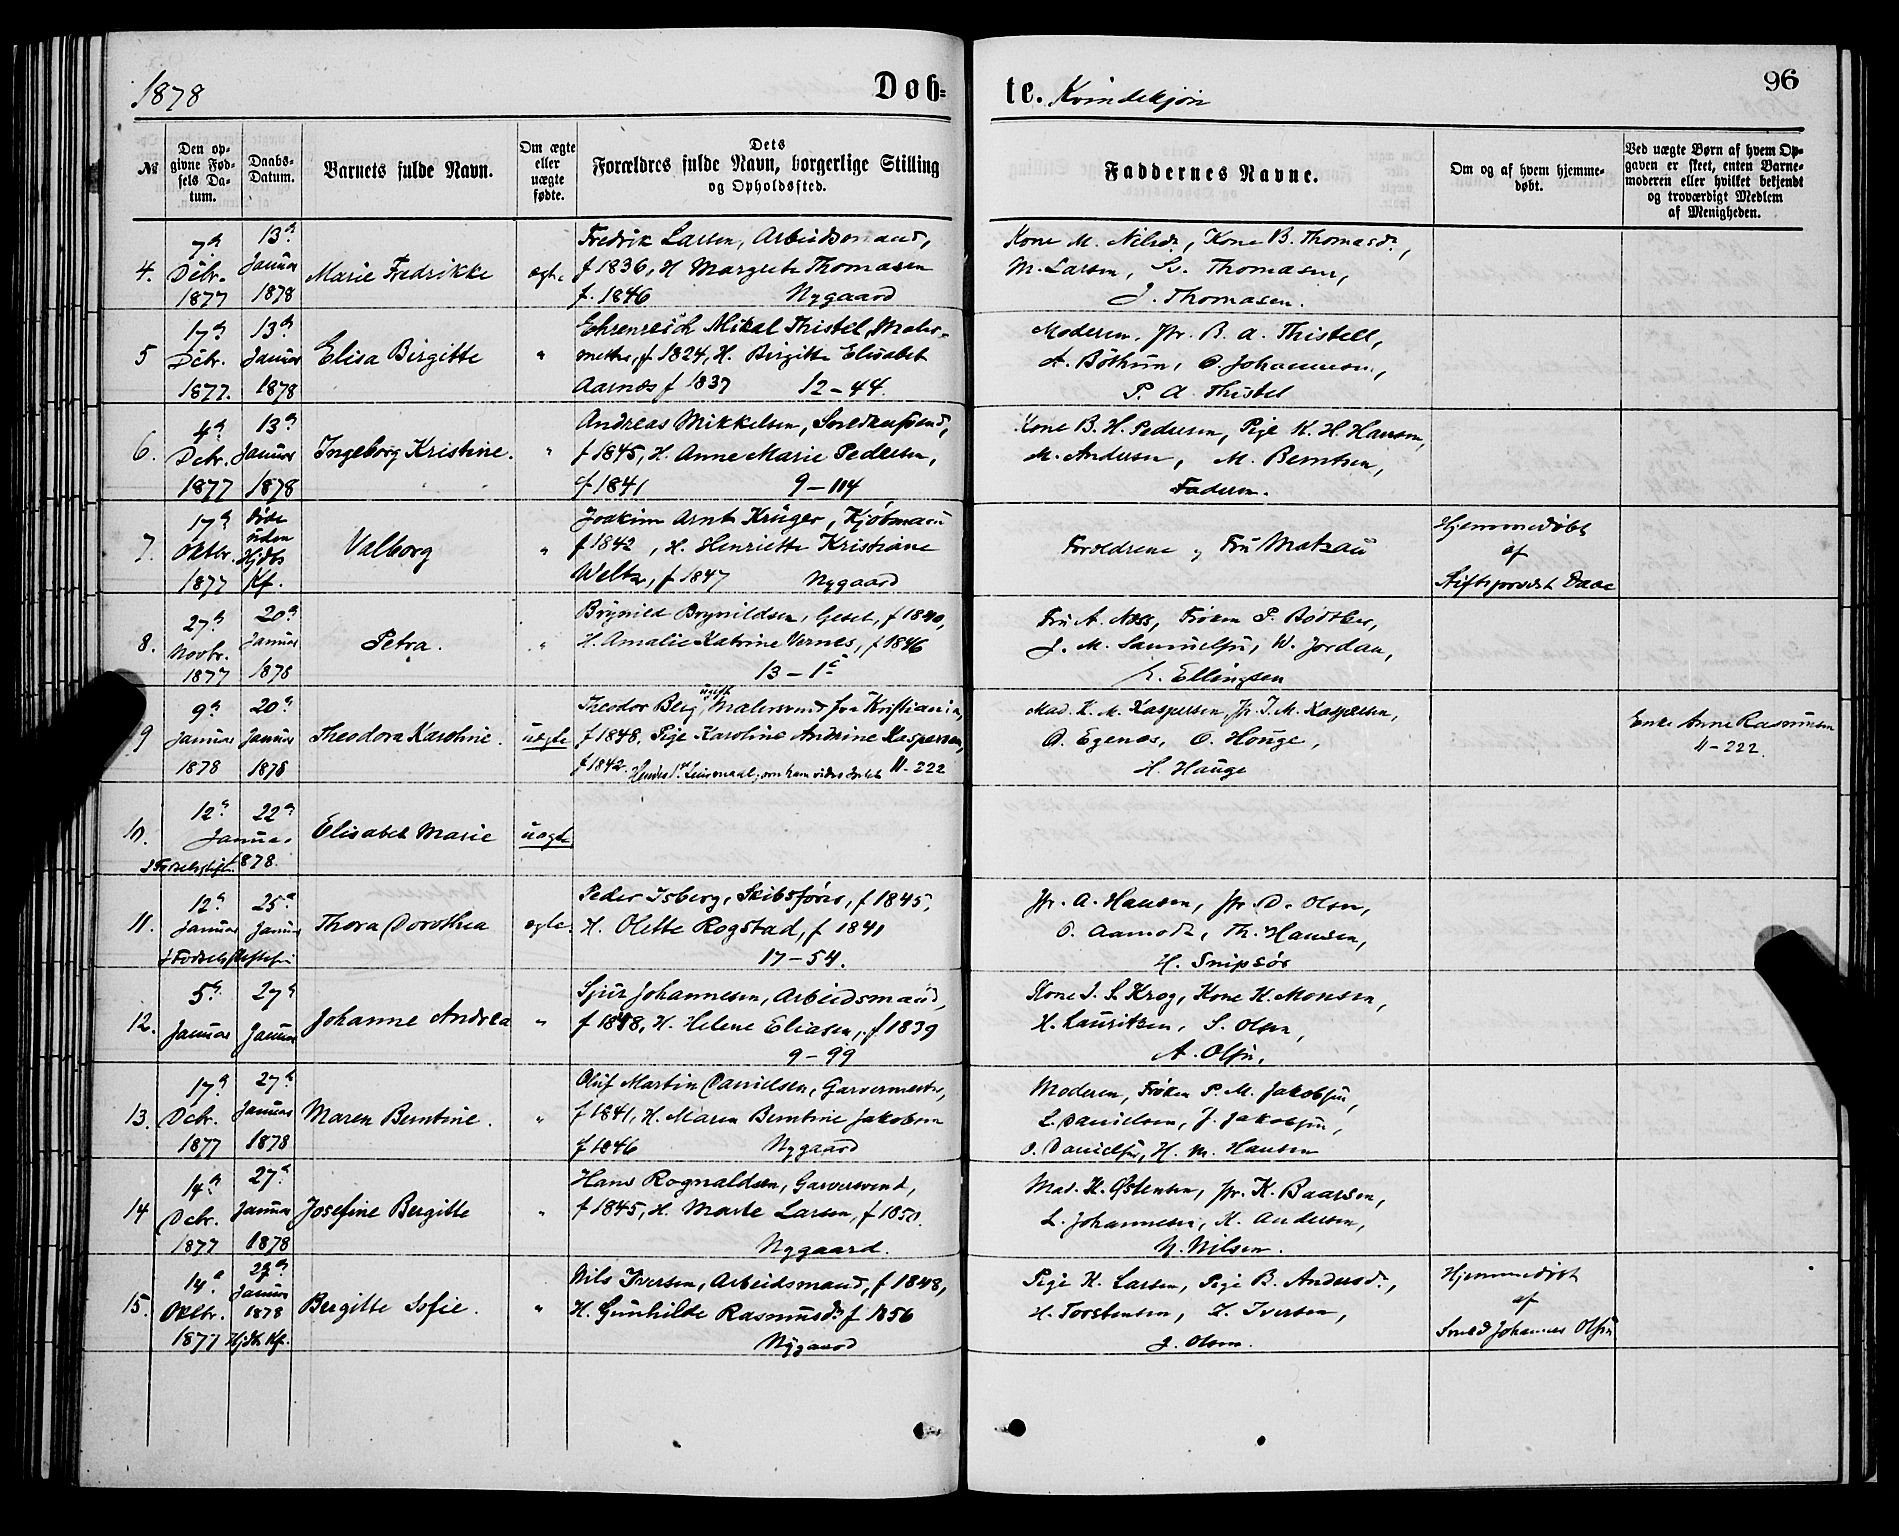 1878
Døb=
te. Kvindekjøn
96
№
Den op-
givne Fød-
sels Da-
tum.
Daabs-
Datum.
Barnets fulde Navn.
Om ægte
eller
uægte
fødte.
Dets
Forældres fulde Navn, borgerlige Stilling
og Opholdssted.
Faddernes Navne.
Om og af hvem hjemme-
døbt.
Ved uægte Børn af hvem Op-
gaven er skeet, enten Barne-
moderen eller hvilket bekjendt
og troværdigt Medlem
af Menigheden.
4.
7de
Decbr.
1877
13de
Januar
1878
Marie Fredrikke
ægte
Fredrik Larsen, Arbeidsmand,
f 1836, H Margrete Thomasen
f. 1846 Nygaard
Kone M. Nilsd., Kone B. Thomasd.,
M. Larsen, Sv. Thomasen,
J. Thomasen.
5
17de
Decbr.
1877.
13de
Januar
1878
Elisa Birgitte
"
Ehrenreich Mikal Thistel, Maler-
mester, f 1824, H. Birgitte Elisabet
Aarnæs f 1837 12-44.
Moderen, Jfr. B. A. Thistell,
A. Böthun, O. Johannesen,
P. A. Thistel
6.
4de
Decbr.
1877
13de
Januar
1878
Ingeborg Kristine.
"
Andreas Mikkelsen, Snedkersvend,
f 1845, H. Anne Marie Pedersen,
f 1841 9-114
Kone B. H. Pedersen, Pige K. H. Hansen,
M. Andersen, M. Berntsen,
Faderen.
7.
17de
Oktbr.
1877
døde
uden
Hjdbs
Kf.
Valborg
"
Joakim Arnt Krüger, Kjöbmand
f 1842, H. Henriette Kristiane
f 1847 Nygaard
Forældrene, Fru
Hjemmedöbt
af
Stiftsprovst Daae
8.
27de
Novbr.
1877
20de
Januar
1878
Petra.
"
Brynild Brynildsen, f 1840,
H. Amalie Katrine Vernes, f 1846
13-1c
Fru A. Næss, Frøken P. Bødtker,
J. M. Samuelsen, W. Jordan,
E. Ellingsen
9
9de
Januar
1878
20de
Januar
1878
Theodora Karoline.
uægte
Theodor Berg, ugift Malersvend fra Kristiania,
f 1848, Pige Karoline Andrine Kaspersen,
f 1842. Hendes 1ste Leiermaal, om ham vides det ikke 11-222
Mad. K. M. Kaspersen, Jfr. J. M. Kaspersen,
A. Egenæs, O. Houge,
H. Hauge
Enke Anne Rasmusen
11-222.
10.
12de
22de
Januar
I Fødselsstift. 1878.
Elisabet Marie
uægte
11.
12de
Januar
25de
Januar
I Fødselsstiftelsen
Thora Dorothea
ægte.
Peder Isberg, Skibsfører, f 1845,
H. Olette Rogstad, f 1841
17-54.
Jfr. A. Hansen, Jfr. D. Olsen,
O. Aamodt, Th. Hansen,
H. Snipsør
12.
5de
Januar
27de
Januar
Johanne Andrea
"
Sjur Johannesen, Arbeidsmand,
f 1848, H. Helene Eliasen, f 1839
9-99
Kone I. S. Krog, Kone K. Monsen,
H. Lauritsen, S. Olsen,
A. Olsen,
13.
17de
Decbr.
1877
27de
Januar
1878
Maren Berntine.
"
Oluf Martin Danielsen, Garvermester,
f 1841, H. Maren Berntine Jakobsen
f 1846 Nygaard
Moderen, Frøken P. M. Jakobsen,
L. Danielsen, J. Jakobsen,
O. Danielsen, H. M. Hansen
14
14de
Decbr.
1877
27de
Januar
1878
Josefine Bergitte
"
Hans Rognaldsen, Garversvend,
f 1845, H. Marte Larsen, f 1850.
Nygaard.
Mad. K. Østensen, Jfr. K. Baarsen,
L. Johannesen, K. Andersen,
N. Nilsen.
15.
14de
Oktbr.
1877
27de
Januar
1878
Hjdb. Kf.
Bergitte Sofie.
"
Nils Iversen, Arbeidsmand, f 1848,
H. Gunhilde Rasmusd. f 1856
Nygaard
Pige K. Larsen, Pige B. Andersd.,
H. Torstensen, I. Iversen,
J. Olsen.
Hjemmedöbt
af
Snedk. Johannes Olsen